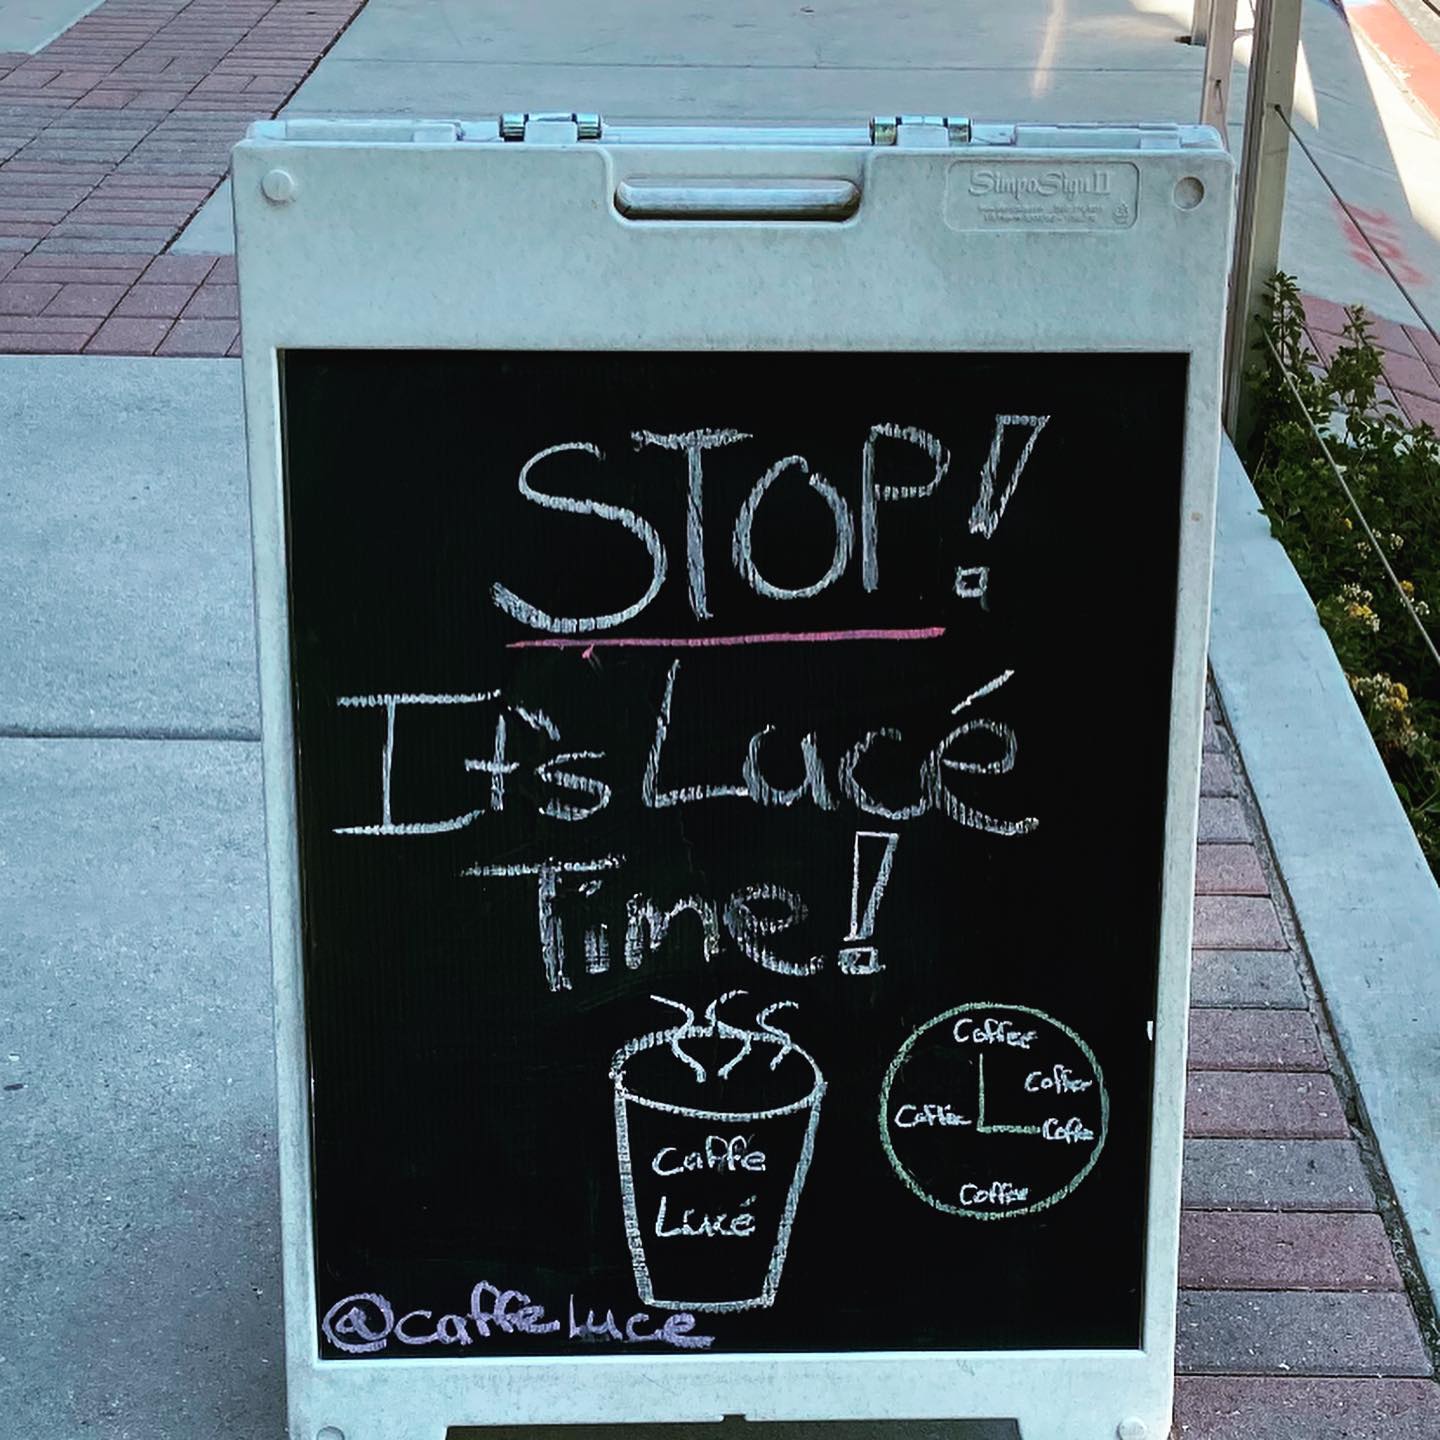 SimpoSign II
STOP!
It's Lucé
Time!
Coffee
Coffee
Coffee
Coffee
Coffee
Caffé
Lucé
@caffeluce